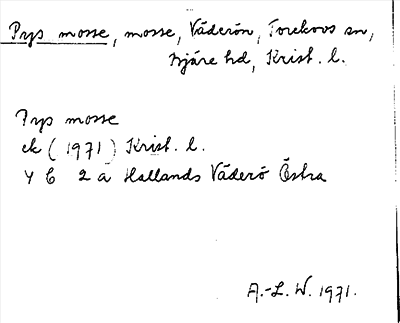 Prys mosse, mosse, Väderön, Torekovs sn,
Bjäre hd, Krist. l.
Prys mosse
ek (1971) Krist. l.
4 C 2 a Hallands Väderö Östra
A.-L. W. 1971.